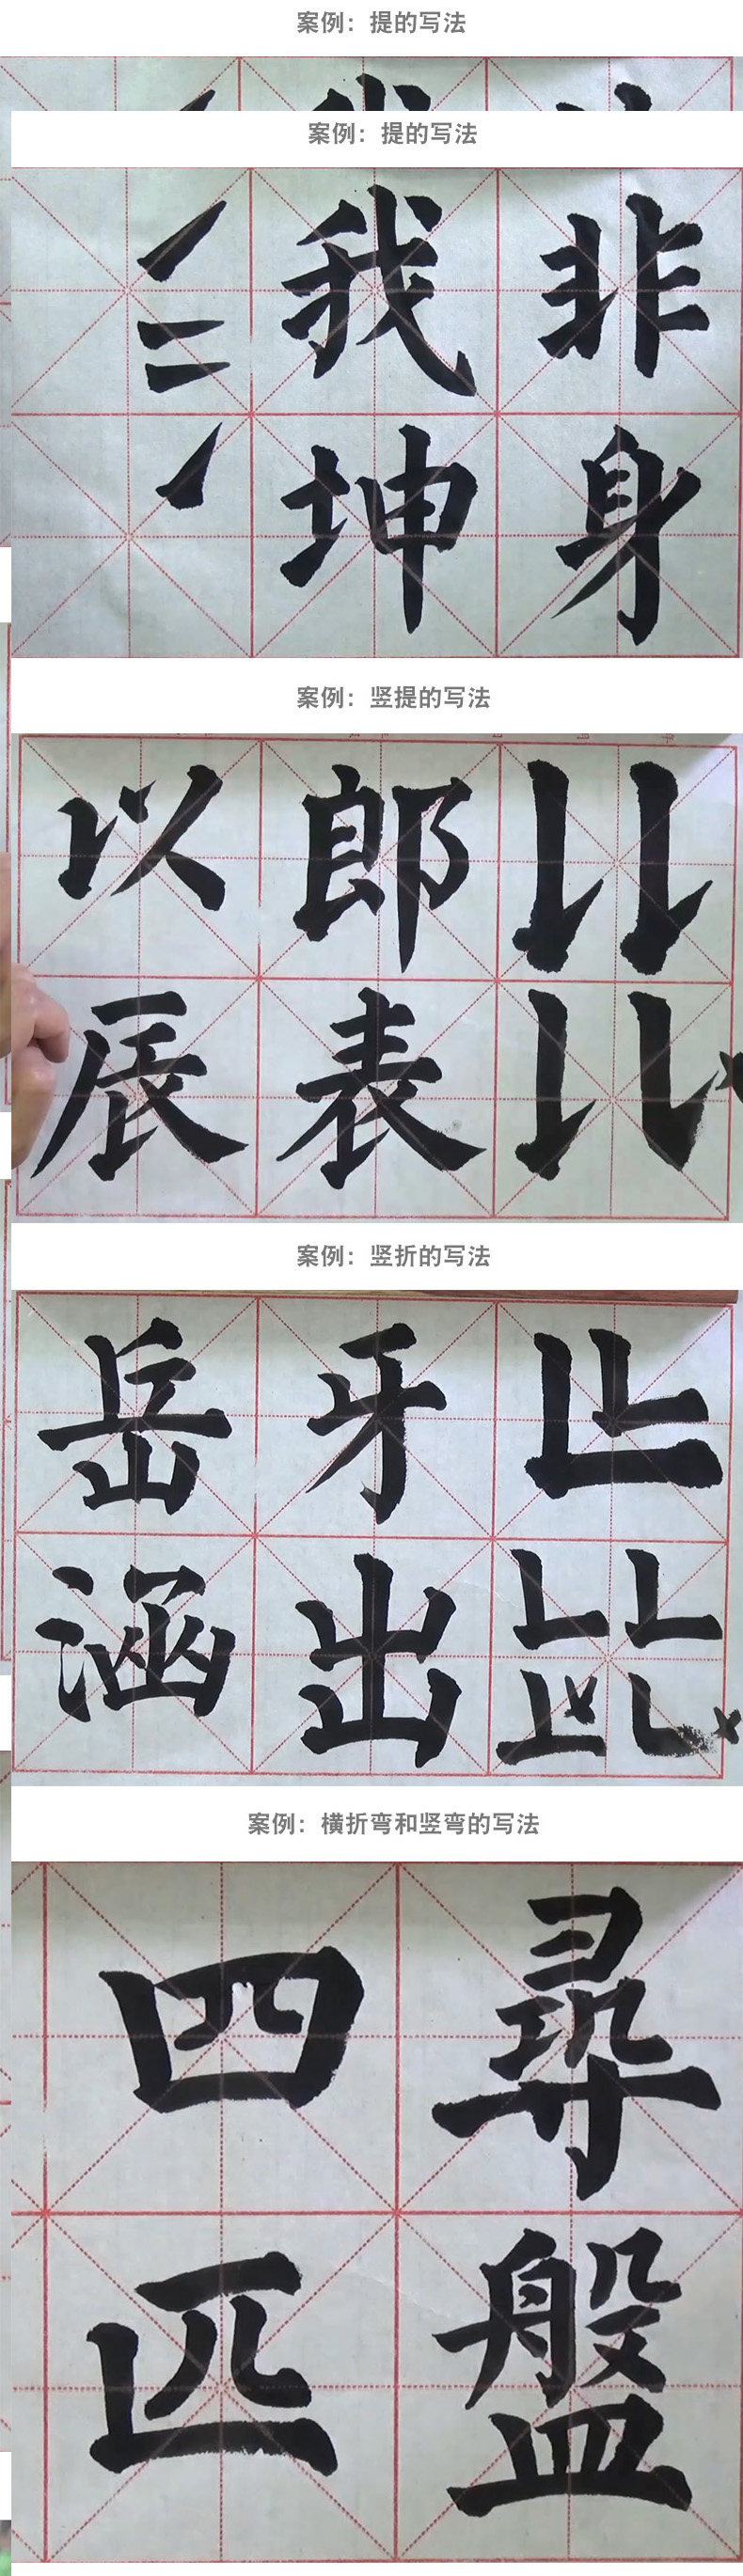 案例：提的写法
案例：提的写法
我 非
坤 身
案例：竖提的写法
以 郎
辰 表
案例：竖折的写法
岳 牙
涵 出
案例：横折弯和竖弯的写法
四 尋
匹 盤